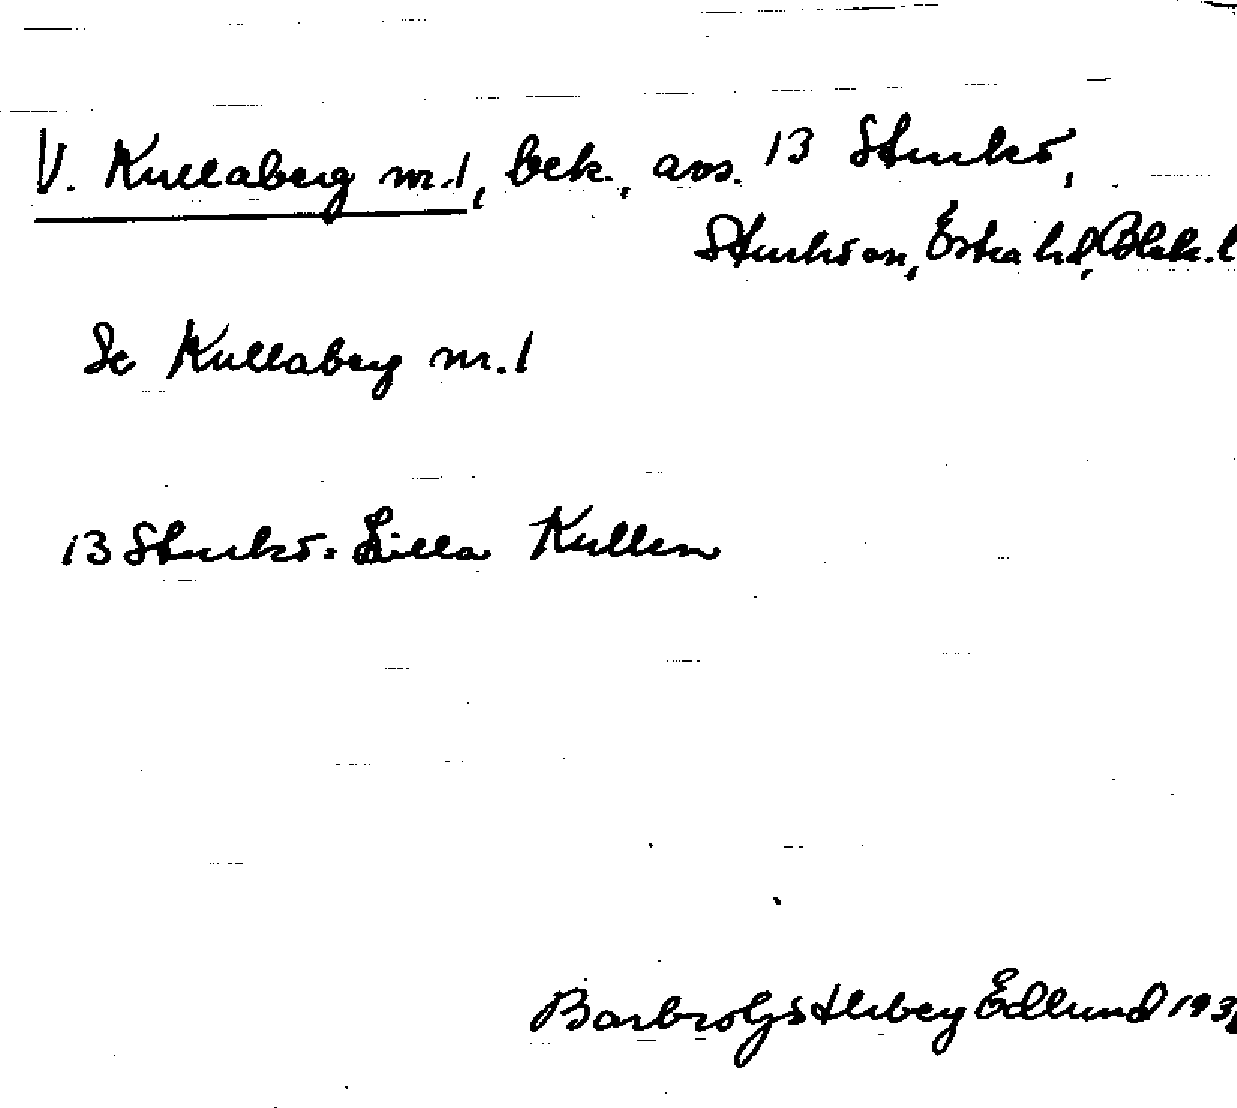 V. Kullaberg nr. 1, bek., avs. 13 Sturkö,
Sturkö sn, Östra hd, Blek. l
Se Kullaberg nr. 1
13 Sturkö: Lilla Kullen
Barbro Edlund 193